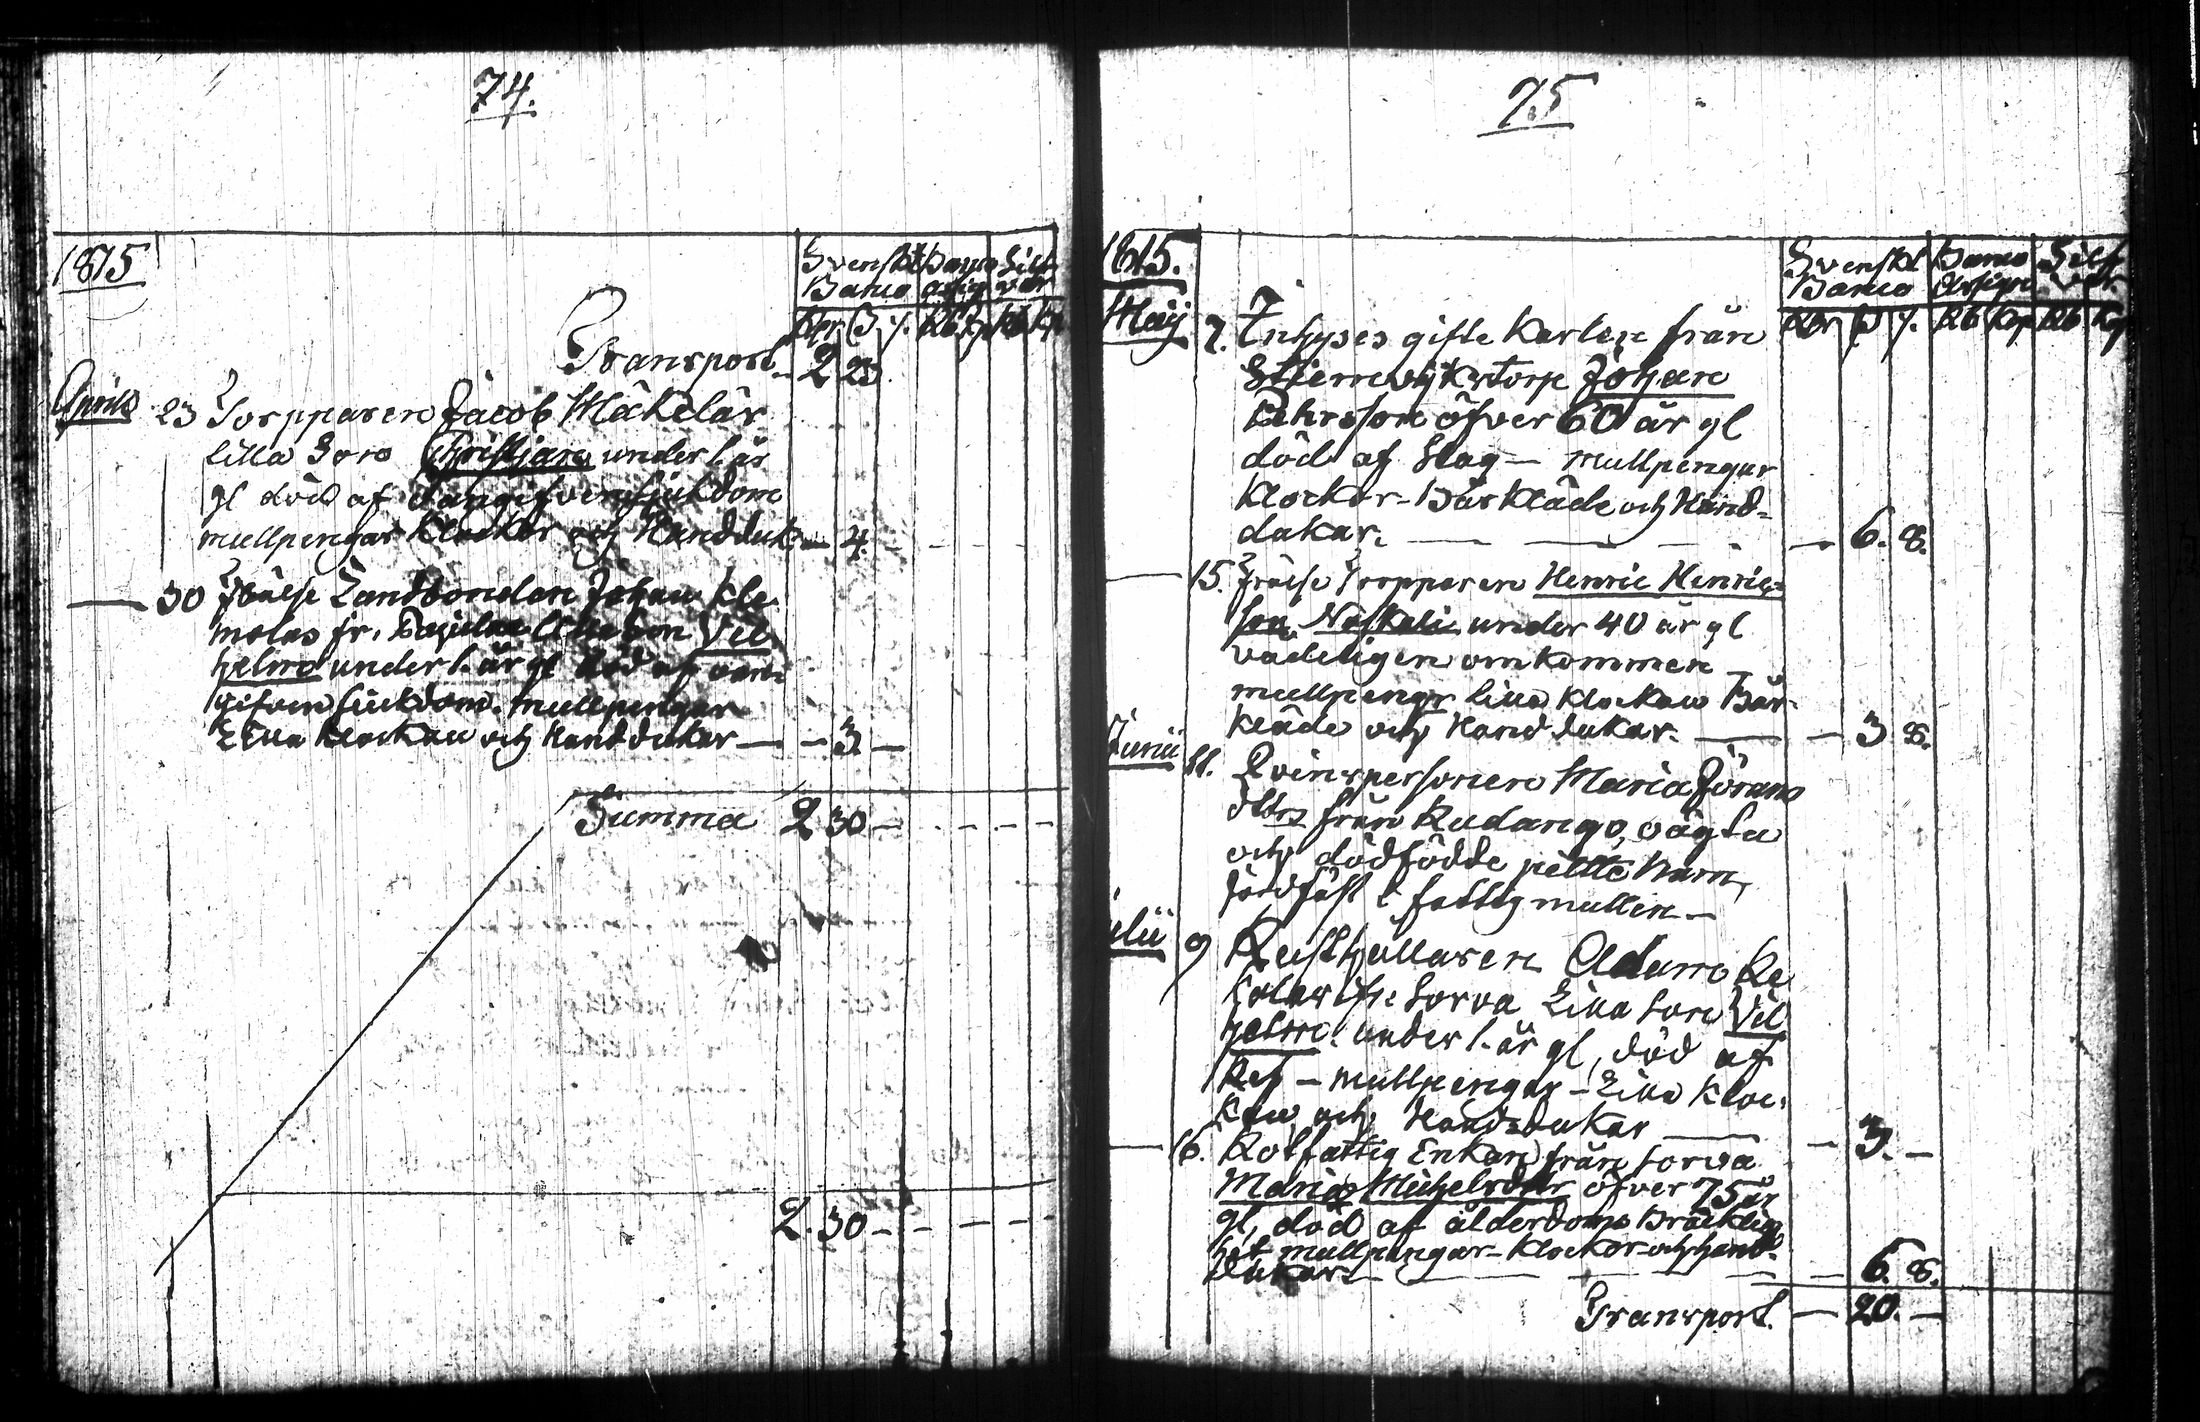 74.
1815
Svenskt Banco Silf
Banco assig. vär
Rdr ß /. Rb Kp Rb Kp
Transport 2 23
Aprill 23 Torpparen Jacob Mäkelär
lilla Son Christjan under 1. år
gl död af okangifven siukdom
mullpengar Klockor och Handduk — 4. —
— 30 Frälse Landbonden Johan Kle
molas fr. lilla son Vil
helm under 1. år gl död af oan
gifven siukdom. mullpengar
Lilla Klockan och Handdukar — — 3. —
Summa 2 30 —
2. 30 —
75
1815.
Svenskt Banco Silf
Banco Assign. vär.
Rdr ß /. Rb Kop Rb Kop
Maij 7. Inhyses gifte Karlen från
Stiernvijks torp Johan
Pehrsson öfver 60 år gl
död af Slag — mullpengar
Klockor - Bårkläde och Hand-
dukar. — 6. 8.
— 15. Frälse Torpparen Henric Henrics-
son Näskali under 40 år gl
vådeligen omkommen
mullpengr lilla Klockan Bår-
kläde och Handdukar. — — 3 8.
Junii 11. Qvinspersonen Maria Jörans
dttrs från Kudango, oägta
och dödfödde piltte barn,
jordfäst i fattigmullen —
ulii 9 Rusthållaren Adam Ke
kolas ifr. Sorva Lilla son Vil
helm. under 1. år gl, död af
Kef — mullpengar — Lilla Kloc-
kan och Handdukar — — 3. —
— 16. Rotfattig Enkan från Sorva
Maria Michelsdttr öfver 75 år
gl, död af ålderdoms Bräcklig
het mullpengar - Klockor och hand-
dukar — — 6. 8.
Transport. — 20. —